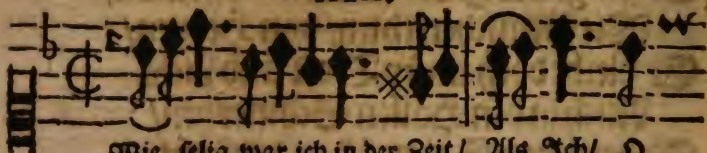 Wie selig war ich in der Zeit/ Als Ich/ O